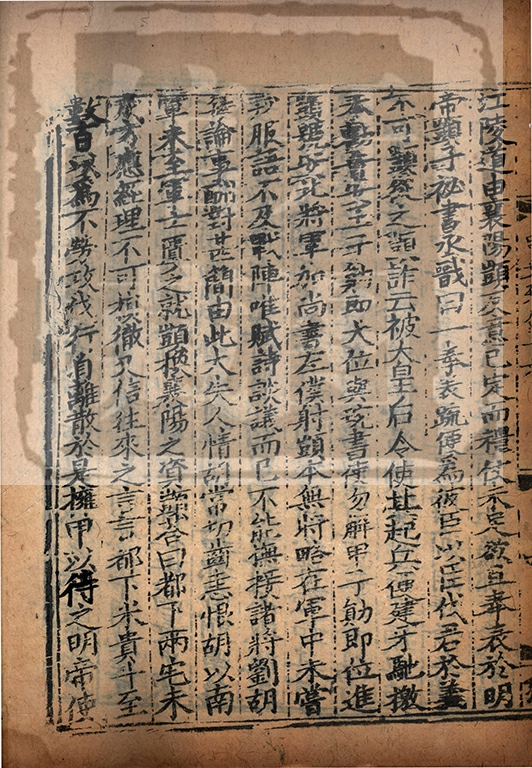 江陵道由襄陽顗反意已定而禮使未足欲且奉表於明
帝顗子祕書丞戩曰一奉表疏便爲彼臣以臣伐君於義
不可顗從之顗詐云被太皇后令使其起兵便建牙馳檄
奉勸晉安王子勛即大位與琬書使勿解甲子勛即位進
顗號安北將軍加尚書左僕射顗本無將略在軍中未嘗
戎服語不及戰陣唯賦詩談議而已不能撫接諸將劉胡
每論事酬對甚簡由此大失人情胡常切齒恚恨胡以南
軍未至軍士匱乏就顗換襄陽之資顗答曰都下兩宅未
成方應經理不可損徹又信往來之言言都下米貴斗至
數百以爲不勞攻伐行自離散於是擁甲以待之明帝使